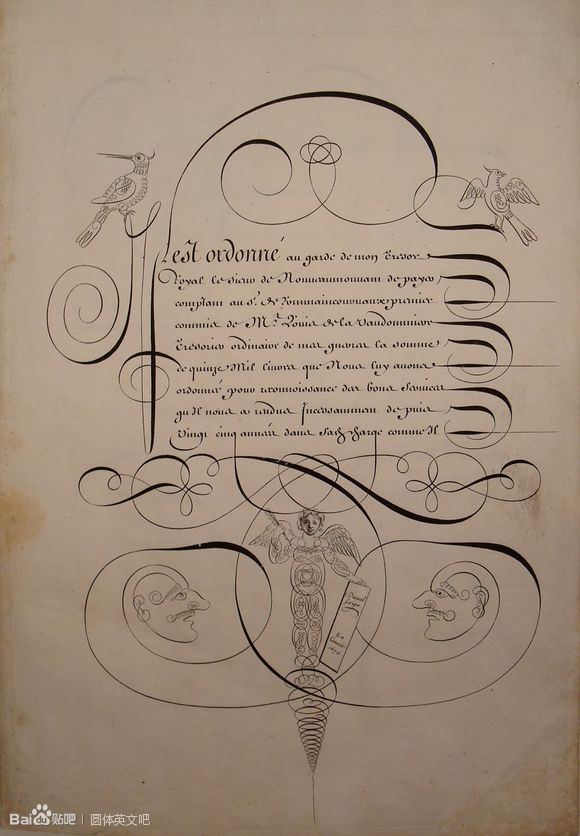 Il est ordonné au garde de mon Tresor
Royal le Sieur de de payer
comptant au Sr. de premier
commis de Mr. Louis de la
Tresorier ordinaire de mes guerres la somme
de quinze Mil livres que Nous luy avons
ordonné pour reconnoissance des bons Services
qu Il nous a rendus Incessammant de puis
Vingt cinq années dans Sa Charge comme Il
En
Bai贴吧 | 圆体英文吧